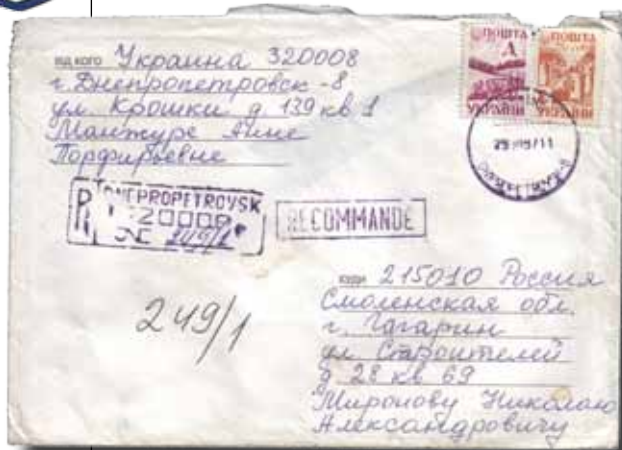 від кого Украина 320008
г. Днепропетровск-8
ул. Крошки д 139 кв 1
Мантуре Анне
Порфирьевне
ПОШТА
А
УКРАЇНИ
ПОШТА
УКРАЇНИ
R DNEPROPETROVSK
320008
249/1
RECOMMANDE
249/1
куди 215010 Россия
Смоленская обл.
г. Гагарин
ул Строителей
д 28 кв 69
Миронову Николаю
Александровичу